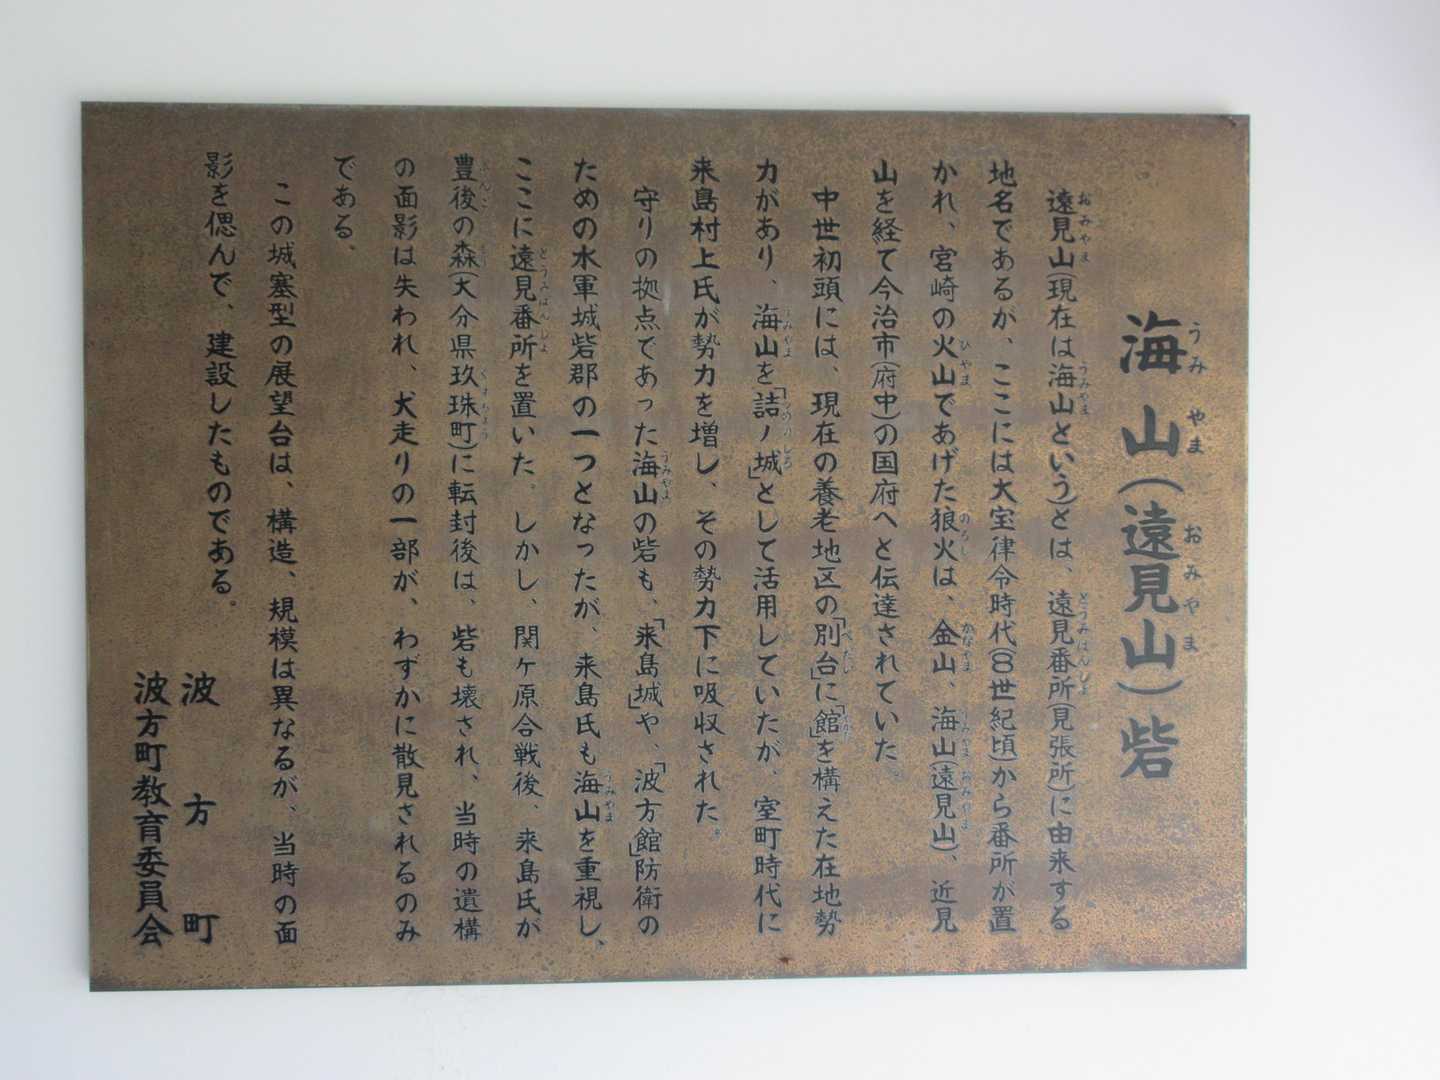 海山(遠見山)砦
遠見山(現在は海山という)とは、遠見番所(見張所)に由来する
地名であるが、ここには大宝律令時代(8世紀頃)から番所が置
かれ、宮崎の火山であげた狼火は、金山、海山(遠見山)、近見
山を経て今治市(府中)の国府へと伝達されていた。
中世初頭には、現在の養老地区の「別台」に「館」を構えた在地勢
力があり、海山を「詰ノ城」として活用していたが、室町時代に
来島村上氏が勢力を増し、その勢力下に吸収された。
守りの拠点であった海山の砦も、「来島城」や、「波方館」防衛の
ための水軍城砦郡の一つとなったが、来島氏も海山を重視し、
ここに遠見番所を置いた。しかし、関ヶ原合戦後、来島氏が
豊後の森(大分県玖珠町)に転封後は、砦も壊され、当時の遺構
の面影は失われ、犬走りの一部が、わずかに散見されるのみ
である。
この城塞型の展望台は、構造、規模は異なるが、当時の面
影を偲んで、建設したものである。
波方町
波方町教育委員会